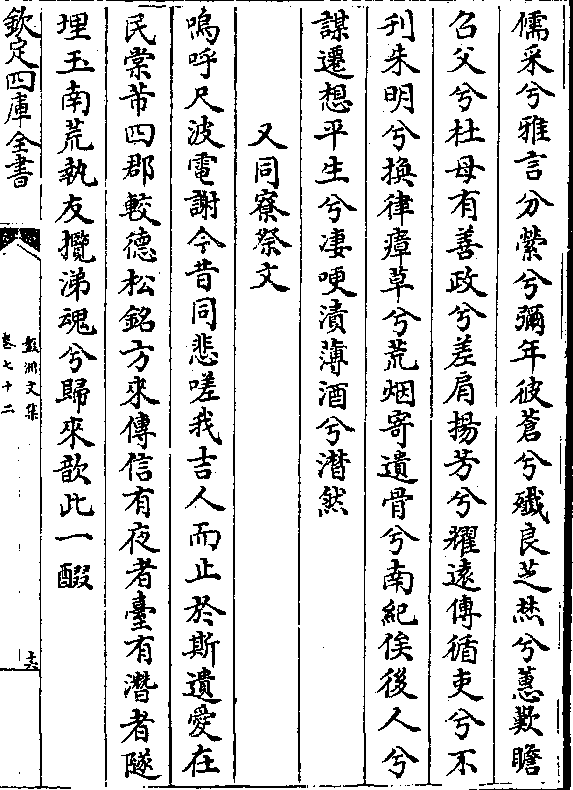 儒采兮雅言分縈兮彌年彼蒼兮殱良芝焚兮蕙歎瞻
召父兮杜母有善政兮差肩揚芳兮耀遠傳循吏兮不
刋朱明兮換律瘴草兮荒烟寄遺骨兮南紀俟後人兮
謀遷想平生兮凄哽漬薄酒兮潸然
又同寮祭文
嗚呼尺波電謝今昔同悲嗟我吉人而止於斯遺愛在
民棠芾四郡較德松銘方來傳信有夜者臺有潛者隧
埋玉南荒執友攬涕魂兮歸來歆此一醊
欽定四庫全書
盤洲文集
卷七十二
十六